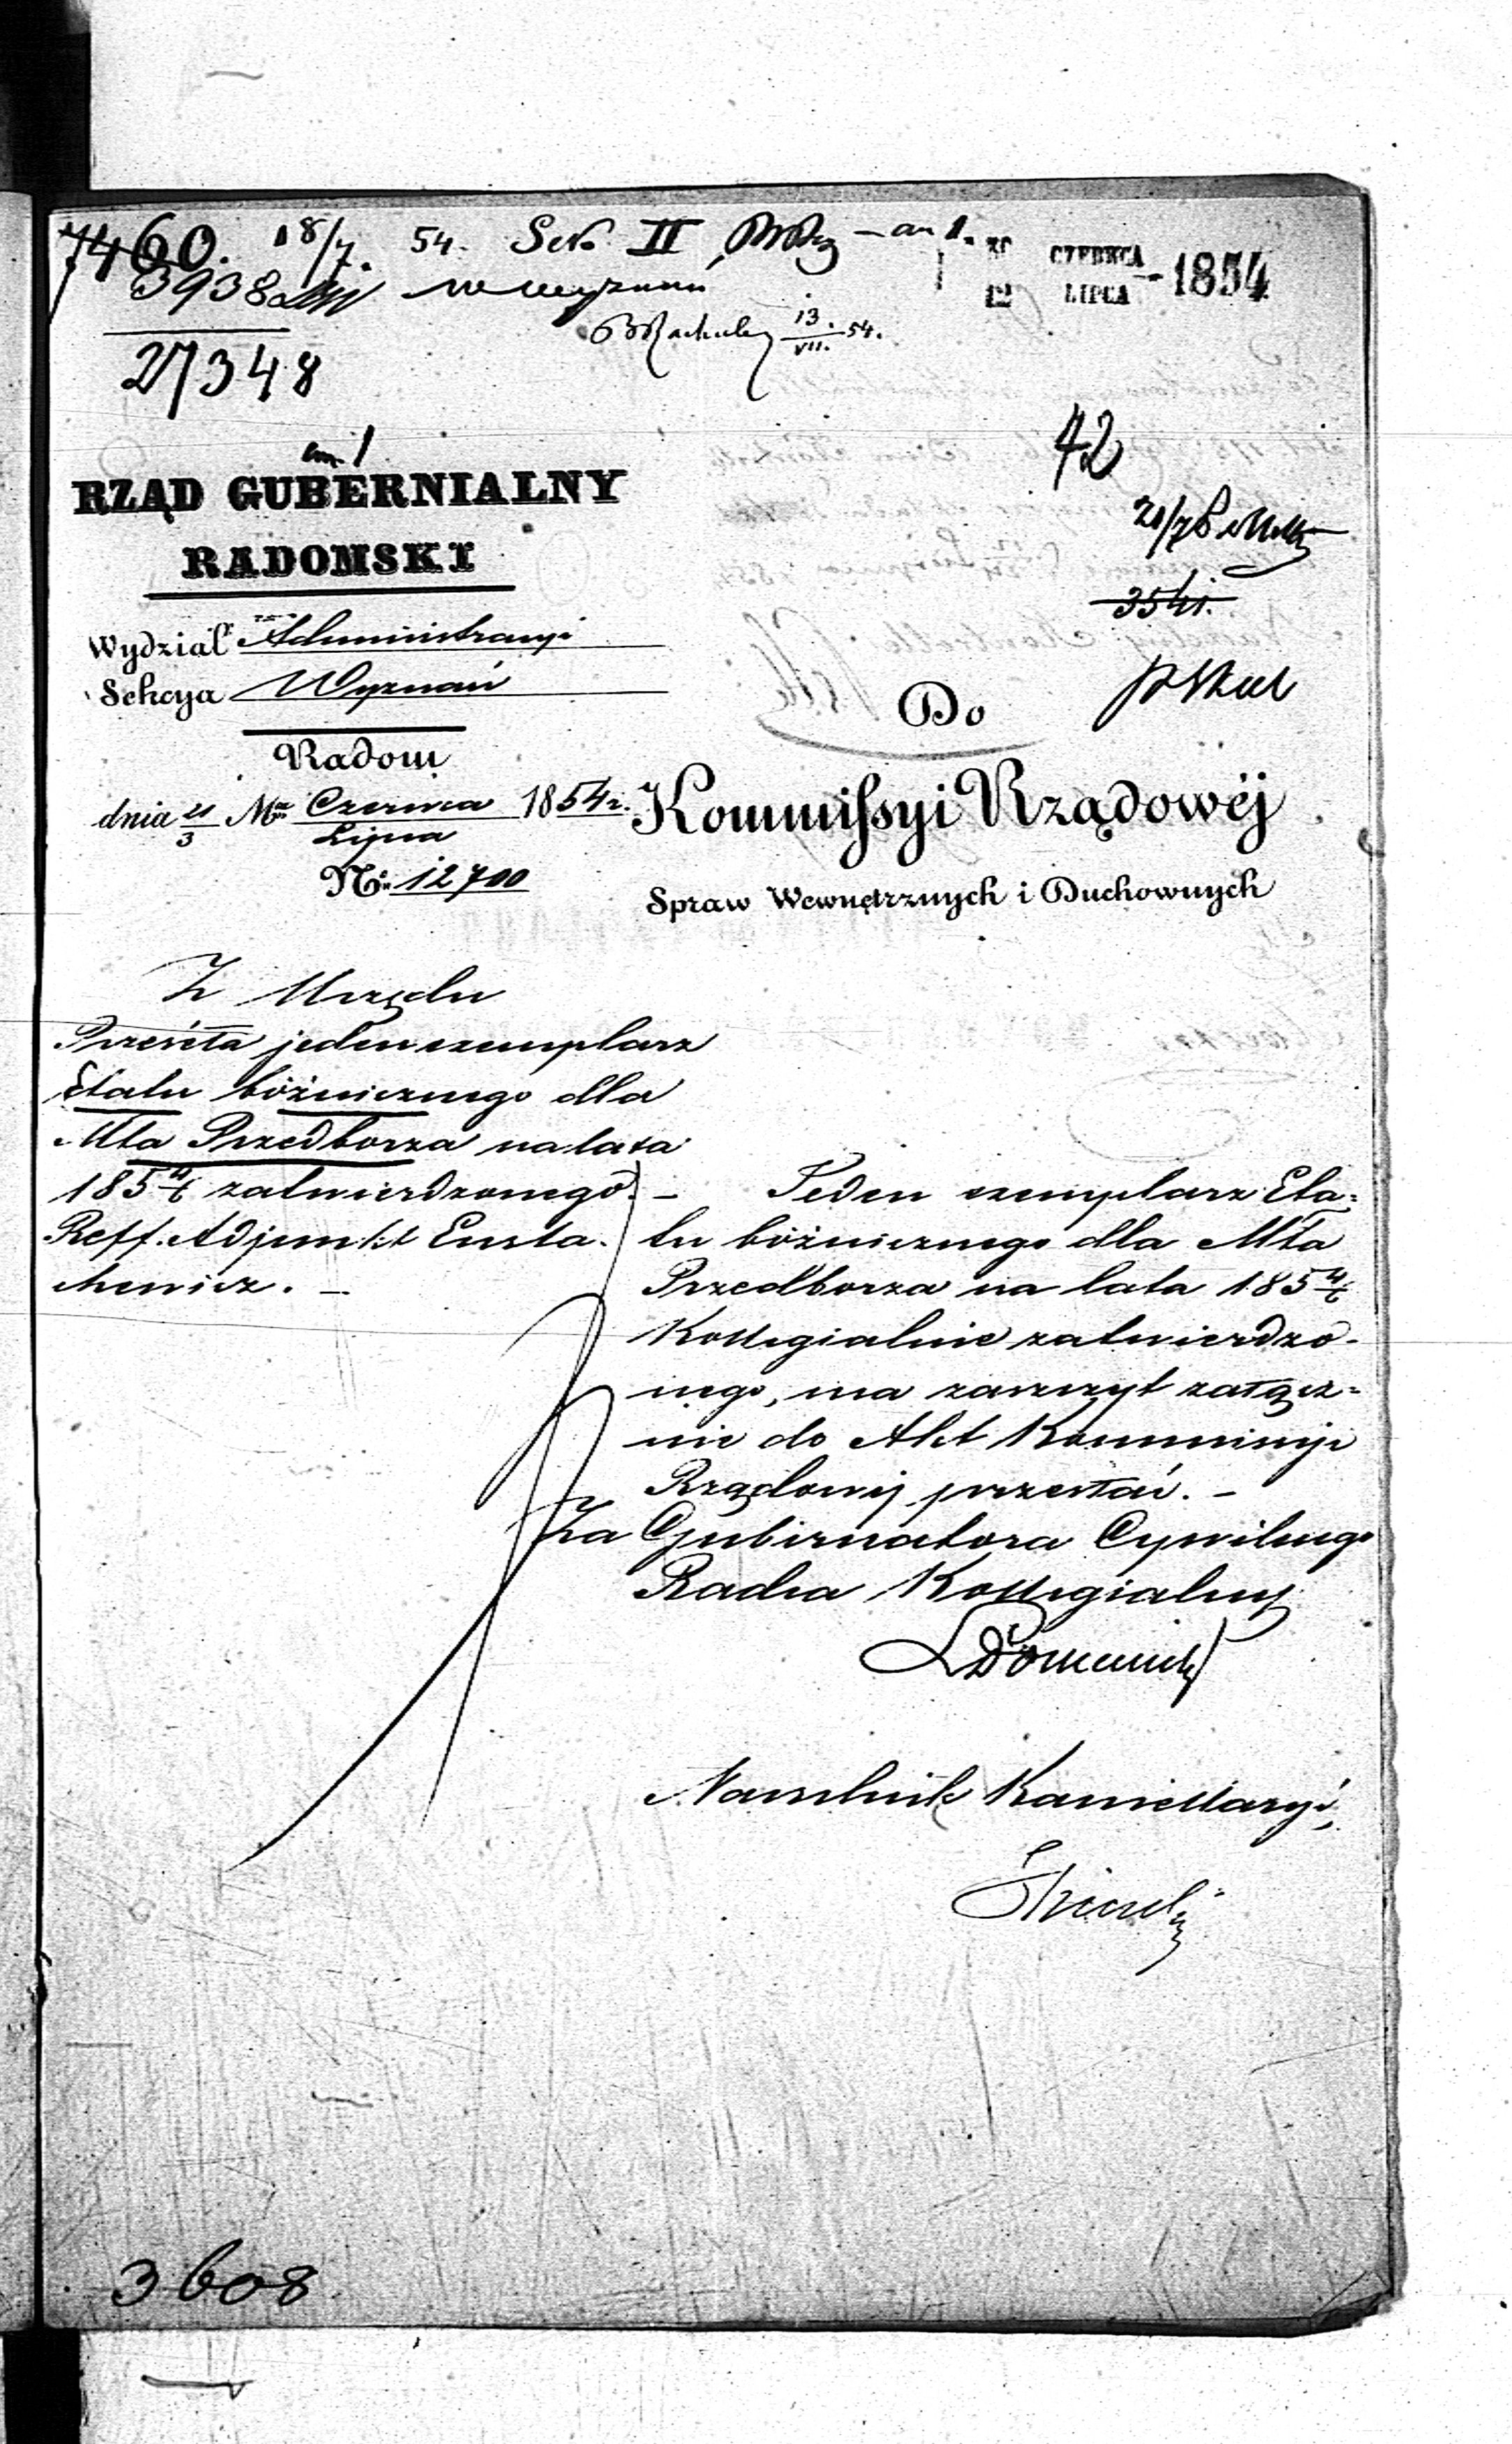 7460. 18/7. 54. Sek. II
3938
27348
13/VII. 54.
30 CZERWCA
12 LIPCA - 1854
42
RZĄD GUBERNIALNY
RADOMSKI
Wydział Administracyi
Sekcya Wyznań
Radom
dnia 21/3 Mca Czerwca/Lipca 1854 r.
No. 12700
Do
Kommissyi Rządowéj
Spraw Wewnętrznych i Duchownych
Z Urzędu
Przesyła jeden exemplarz
Etatu bóżnicznego dla
Mta Przedborza na lata
1854/6 zatwierdzonego. -
Reff. Adjunkt Eusta-
chewicz. -
Jeden exemplarz Eta=
tu bóżnicznego dla Mta
Przedborza na lata 1854/6
Kollegialnie zatwierdzo-
nego, ma zaszczyt załącz=
nie do Akt Kommissyi
Rządowej przesłać. -
Za Gubernatora Cywilnego
Radca Kollegialny
Naczelnik Kancellaryi,
3608